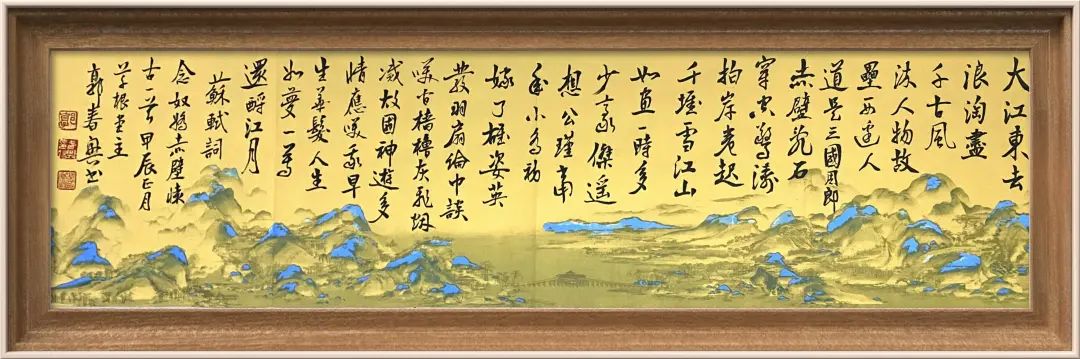 大江東去
浪淘盡
千古風
流人物故
壘西邊人
道是三國周郎
赤壁亂石
穿空驚濤
拍岸卷起
千堆雪江山
如畫一時多
少豪傑遥
想公瑾當
年小喬初
嫁了雄姿英
發羽扇綸巾談
笑間檣櫓灰飛烟
滅故國神遊多
情應笑我早
生華髮人生
如夢一尊
還酹江月
蘇軾詞
念奴嬌赤壁懷
古一首甲辰正月
草根堂主
郭春書